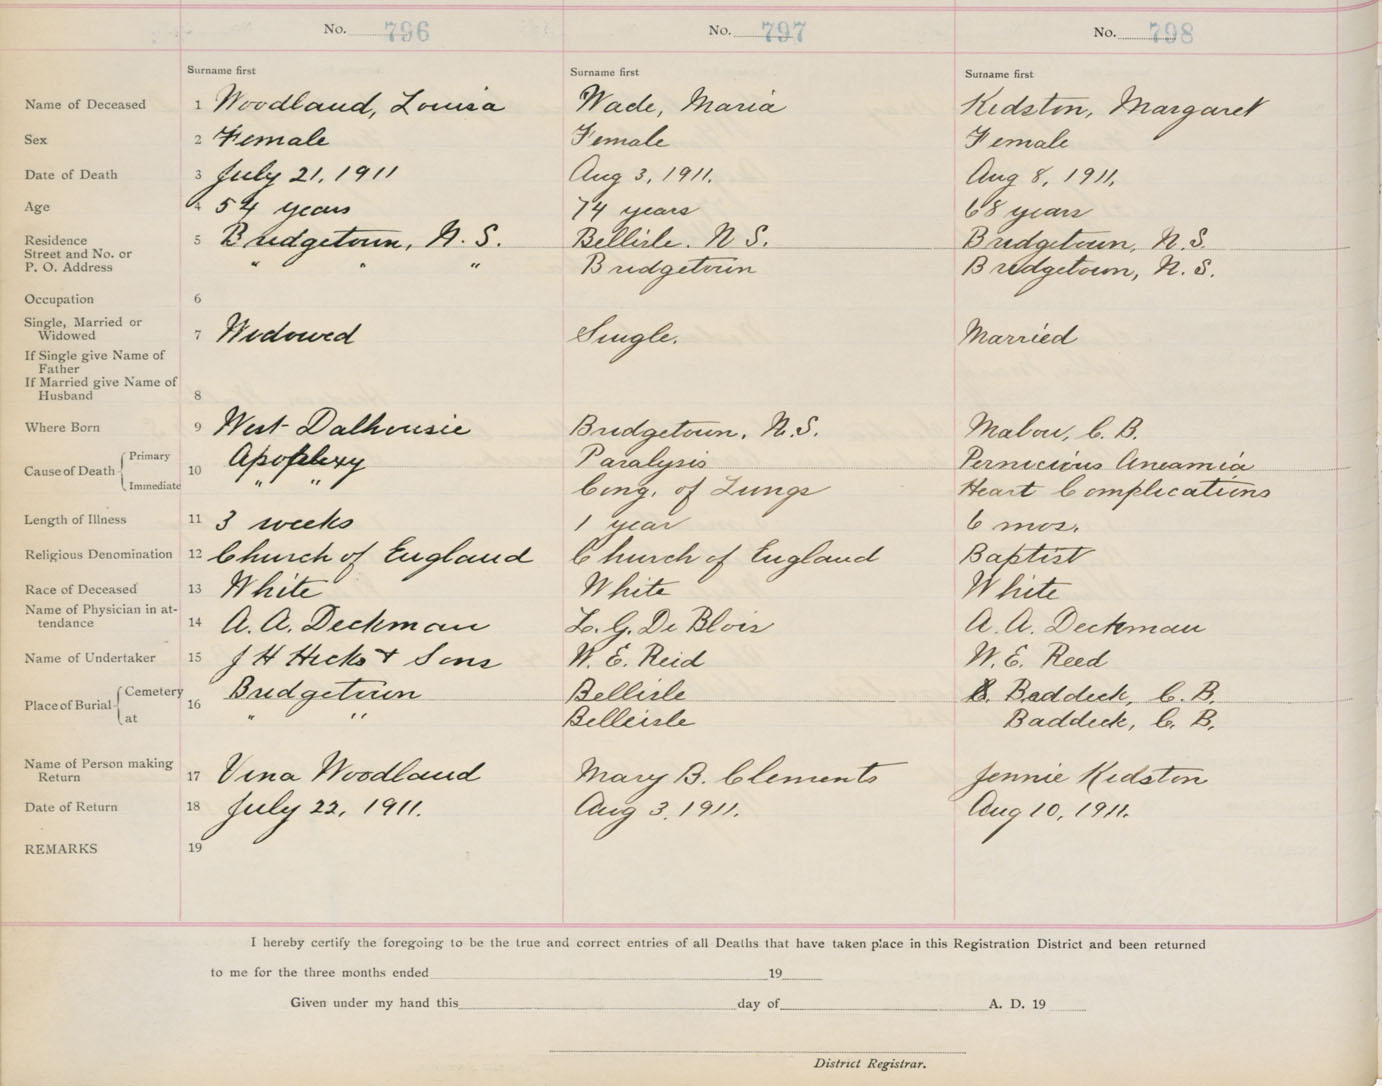 No. 796 No. 797 No. 798
Surname first Surname first Surname first
Name of Deceased 1 Woodland, Louisa Wade, Maria Kidston, Margaret
Sex 2 Female Female Female
Date of Death 3 July 21, 1911 Aug 3, 1911. Aug 8, 1911.
Age 4 54 years 74 years 68 years
Residence 5 Bridgetown, N. S. Bellisle. N S. Bridgetown, N.S.
Street and No. or
P. O. Address " " " Bridgetown Bridgetown, N.S.
Occupation 6
Single, Married or
Widowed 7 Widowed Single. Married
If Single give Name of
Father
If Married give Name of
Husband 8
Where Born 9 West Dalhousie Bridgetown, N.S. Mabou, C. B.
Cause of Death Primary 10 Apoplexy Paralysis Pernicious Aneamia
Immediate " " Cong. of Lungs Heart Complications
Length of Illness 11 3 weeks 1 year 6 mos.
Religious Denomination 12 Church of England Church of England Baptist
Race of Deceased 13 White White White
Name of Physician in at-
tendance 14 A. A. Deckman L. G. De Blois A. A. Deckman
Name of Undertaker 15 J H Hicks & Sons W. E. Reid W. E. Reed
Place of Burial Cemetery 16 Bridgetown Bellisle Baddeck, C. B.
at " " Belleisle Baddeck, C. B.
Name of Person making
Return 17 Vina Woodland Mary B. Clements Jennie Kidston
Date of Return 18 July 22, 1911. Aug 3, 1911. Aug 10, 1911.
REMARKS 19
I hereby certify the foregoing to be the true and correct entries of all Deaths that have taken place in this Registration District and been returned
to me for the three months ended 19
Given under my hand this day of A. D. 19
District Registrar.